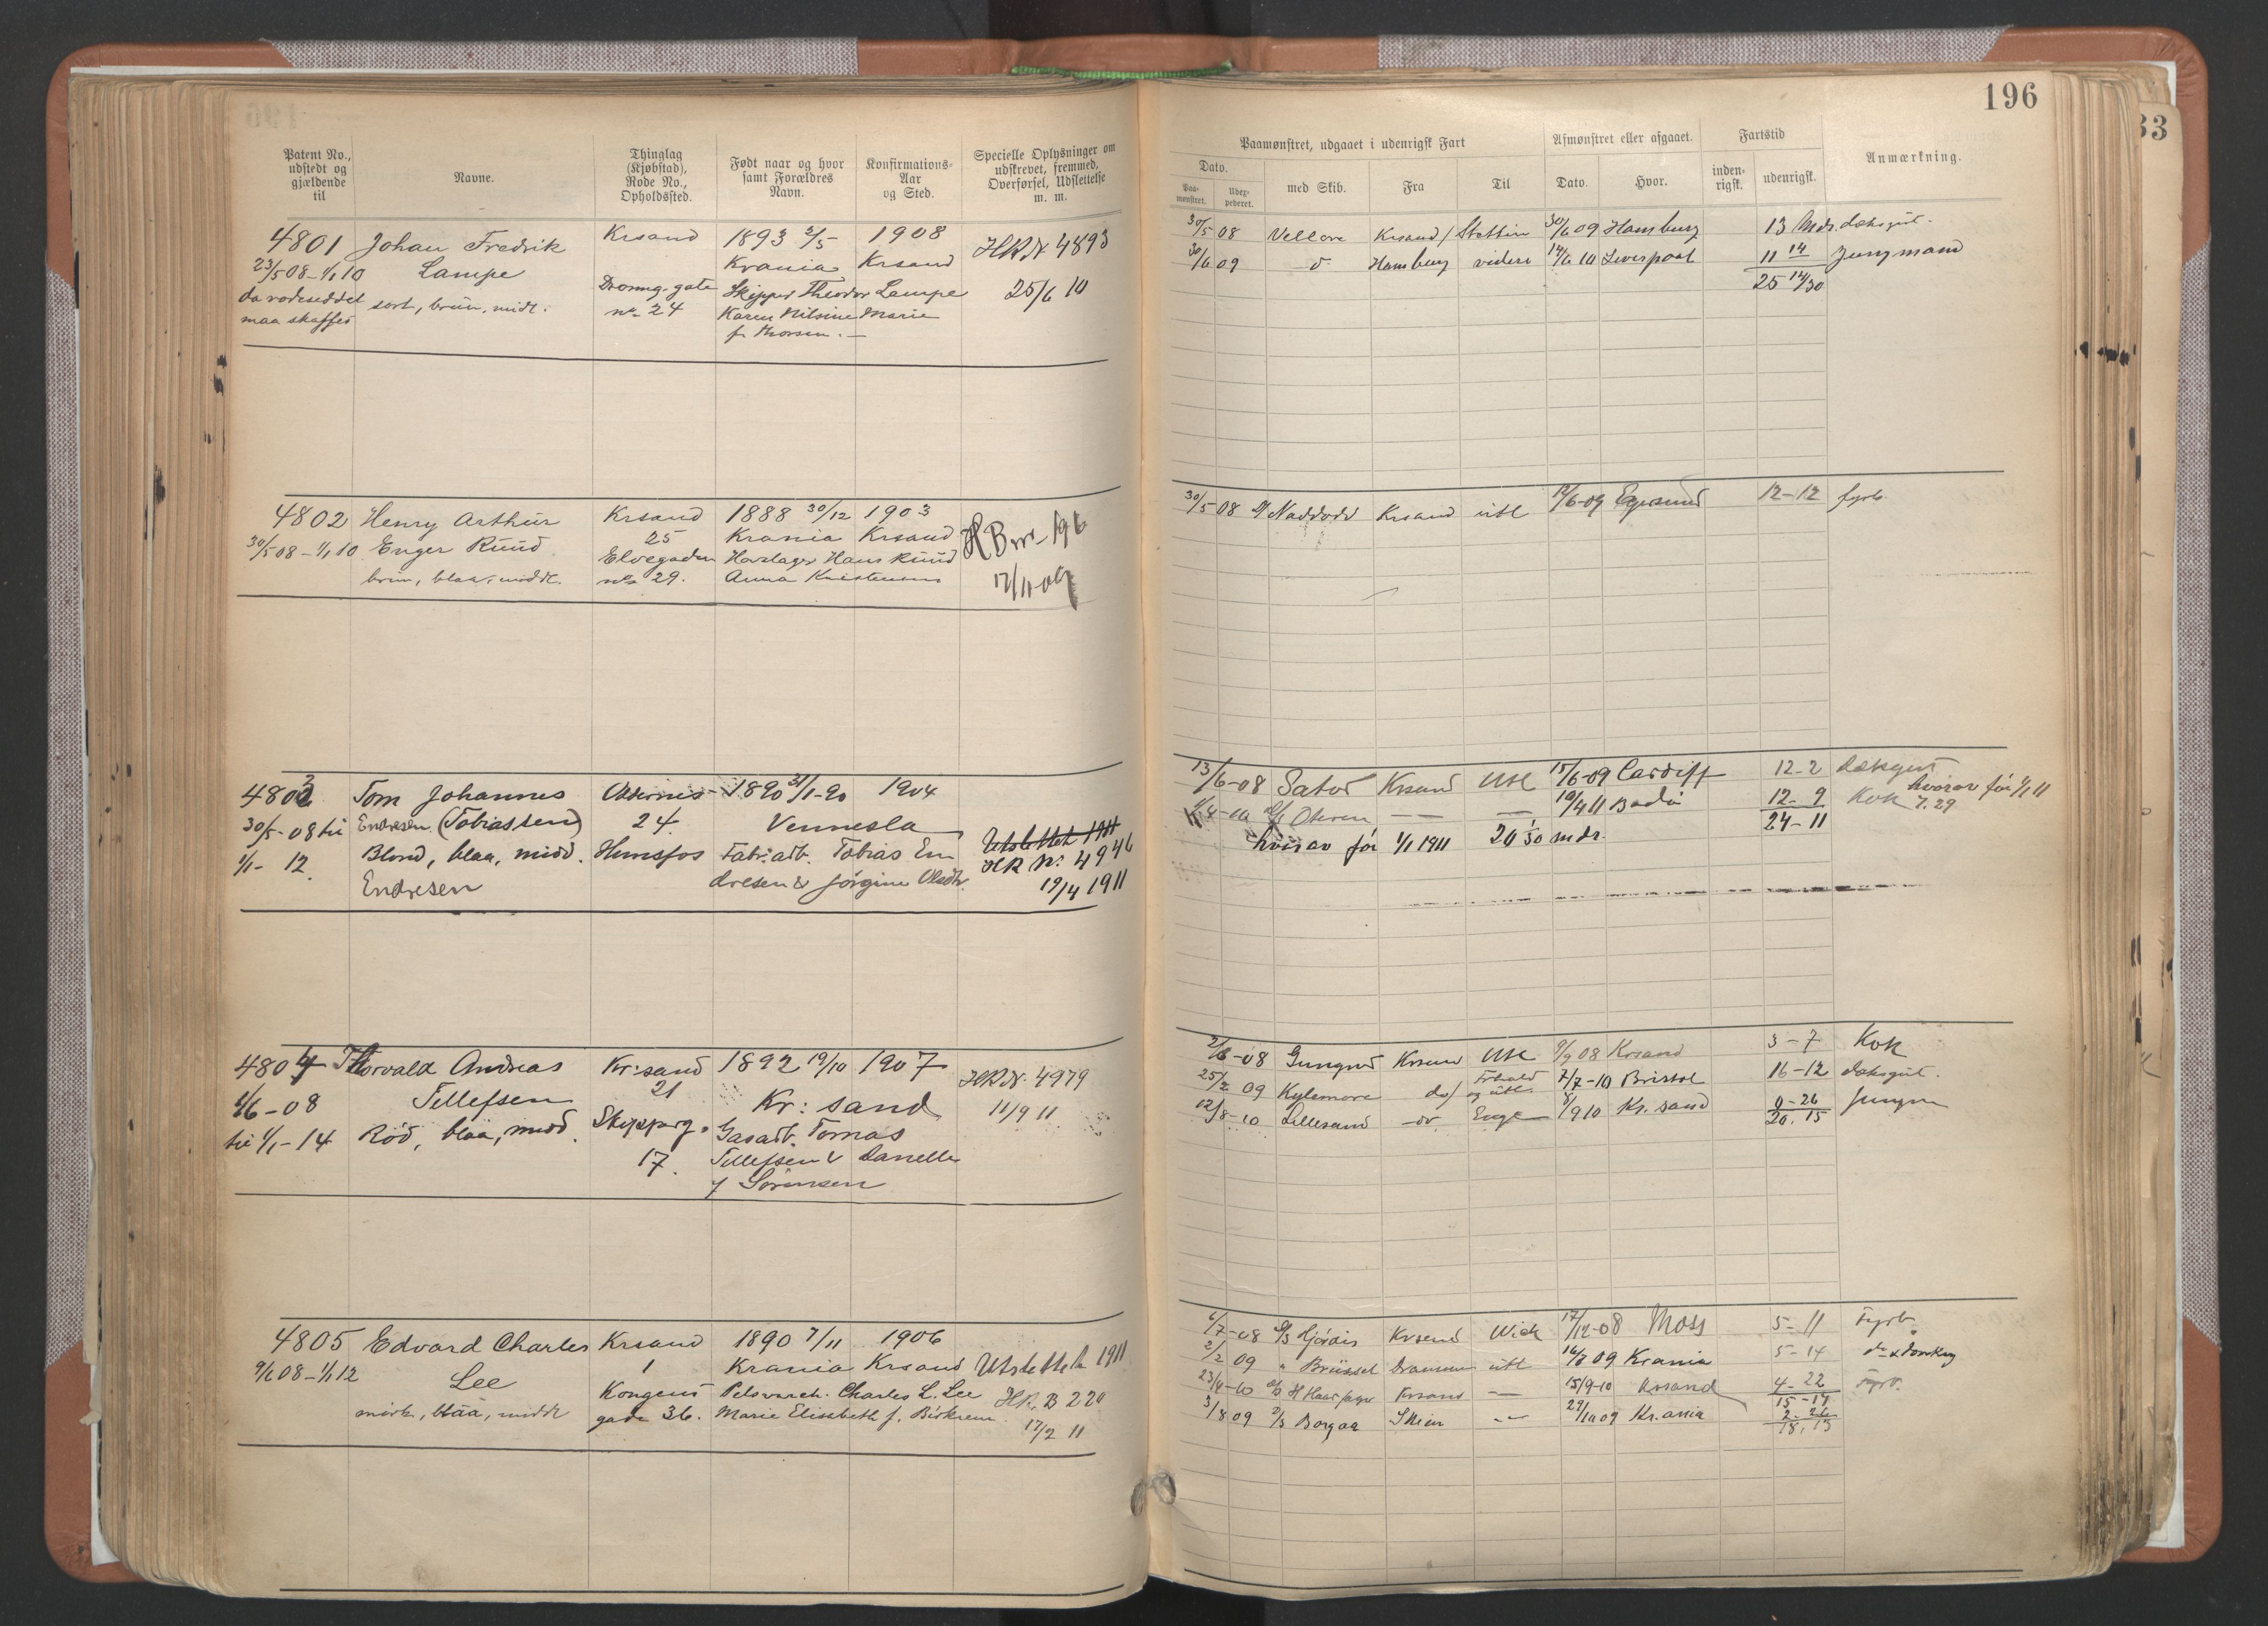 196
Patent No., udstedt og gjældende til
Navne.
Thinglag (Kjøbstad), Rode No., Opholdssted.
Født naar og hvor samt Forældres Navn.
Konfirmations-Aar og Sted.
Specielle Oplysninger om udskrevet, fremmed, Overførsel, Udslettelse m. m.
Paamønstret, udgaaet i udenrigsk Fart
Dato.
Paa-mønstret.
Udex-pederet.
med Skib.
Fra
Til
Afmønstret eller afgaaet.
Dato.
Hvor.
Fartstid
inden-rigsk.
udenrigsk.
Anmærkning.
33
4801 Johan Fredrik Krsand 1893 2/5 1908 HR N 4893
23/5 08 - 1/1 10 Lampe Krania Krsand
da rodeseddel sort, brun, midl. Dronng. gate Skipper Theodor Lampe 25/6 10
maa skaffes no 24 Karen Nilsine Marie
f. Thorsen. —
30/5 08 Vellore Krsand / Stettin 30/6 09 Hamburg 13 Mdr. dæksgut.
30/6 09 d Hamburg videre 14/6 10 Liverpool 11 14 Jungmand
25 14/30
4802 Henry Arthur Krsand 1888 30/12 1903
30/5 08 - 1/1 10 Enger Ruud 25 Krania Krsand HB no 196
brun, blaa, middl. Elvegaden Hovslager Hans Ruud
no 29. Anna Kristensen 17/11 09
30/5 08 D/ Naddodd Krsand utl 12/6-09 Egersund 12-12 fyrb.
4803 Tom Johannes Oddernes 1890 31/1-90 1904
30/5-08 til Endresen (Tobiassen) 24. Vennesla Utslettet 1911
1/1- 12. Blond, blaa, midd. Hunsfos Fabr.arb. Tobias En HR No. 4946
Endresen dresen & Jørgine Olsdtr. 19/4 1911
13/6-08 Sator Krsand Utl 15/6-09 Cardiff 12-2 dæksgut
/8-10 D/S Oteren — — 10/4 11 Bodø 12-9 Kok hvorav før 1/1 11 7.29
24-11
hvorav før 1/1 1911 20 1/30 mdr.
4804 Thorvald Andreas Kr:sand 1892 19/10 1907 HR N. 4979
1/6-08 Tellefsen 21 Kr: sand 11/9 11
til 1/1-14 Rød, blaa, midd. Skipperg. Gasarb. Tomas
17. Tellefsen & Danelle
f Sörensen
2/6-08 Gungner Krsand Utl 9/9 08 Krsand 3-7 Kok
25/2 09 Kylemore do/ og utl. 7/7-10 Bristol 16-12 dæksgut.
12/8-10 Lillesand do Enge 8/9 10 Kr. sand 0-26 Jungm
20.15
4805 Edvard Charles Krsand 1890 7/11 1906
9/6 08 - 1/1 12 Lee 1 Krania Krsand Utslettela 1911
mörk, blaa, middl Kongens Pelsvareh. Charles L. Lee HR. B 220
gade 36. Marie Elisabeth f. Birkrem 17/2 11
6/7-08 D/S Hjördis Krsand Wick 17/12-08 Moss 5-11 Fyrb.
2/2 09 " Brüssel Drammen utl 16/7 09 Krania 5-14 do & donkey
23/4-10 D/S H Haarfager Krsand — 15/9-10 Krsand 4-22 Fyrb.
15-17
3/8 09 D/S Borgaa Skien — 29/10 09 Kr.ania 2-26
18,13